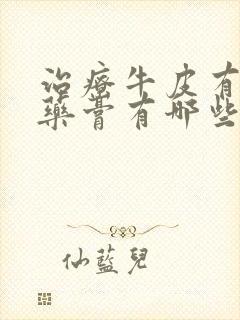 治療牛皮有
藥膏有哪些
仙藍兒